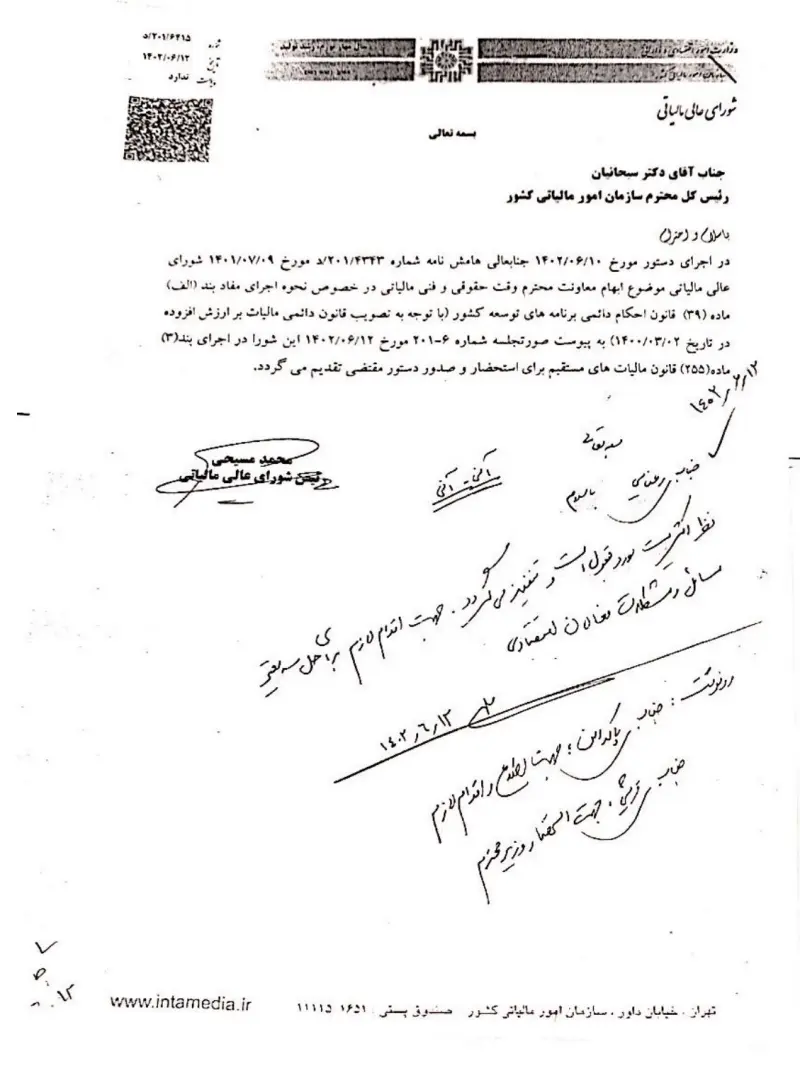 شماره ۲۰۱/۶۲۱۵/د
تاریخ ۱۴۰۲/۰۶/۱۲
پیوست ندارد
شورای عالی مالیاتی
بسمه تعالی
جناب آقای دکتر سبحانیان
رئیس کل محترم سازمان امور مالیاتی کشور
باسلام و احترام
در اجرای دستور مورخ ۱۴۰۲/۰۶/۱۰ جنابعالی هامش نامه شماره ۲۰۱/۴۳۴۳/د مورخ ۱۴۰۱/۰۷/۰۹ شورای
عالی مالیاتی موضوع ابهام معاونت محترم وقت حقوقی و فنی مالیاتی در خصوص نحوه اجرای مفاد بند (الف)
ماده (۳۹) قانون احکام دائمی برنامه های توسعه کشور (با توجه به تصویب قانون دائمی مالیات بر ارزش افزوده
در تاریخ ۱۴۰۰/۰۳/۰۲) به پیوست صورتجلسه شماره ۶-۲۰۱ مورخ ۱۴۰۲/۰۶/۱۲ این شورا در اجرای بند(۳)
ماده(۲۵۵) قانون مالیات های مستقیم برای استحضار و صدور دستور مقتضی تقدیم می گردد.
محمد مسیحی
رئیس شورای عالی مالیاتی
آنی آنی
بسمه تعالی
جناب
باسلام
نظر اکثریت مورد قبول است و تنفیذ می گردد. جهت اقدام لازم برای حل سریعتر
مسائل و مشکلات فعالان اقتصادی
۱۴۰۲/۶/۱۳
رونوشت: جناب پاکدامن؛ جهت اطلاع و اقدام لازم
جناب جهت استحضار وزیر محترم
تهران ، خیابان داور ، سازمان امور مالیاتی کشور صندوق پستی : ۱۶۵۱-۱۱۱۱۵ www.intamedia.ir